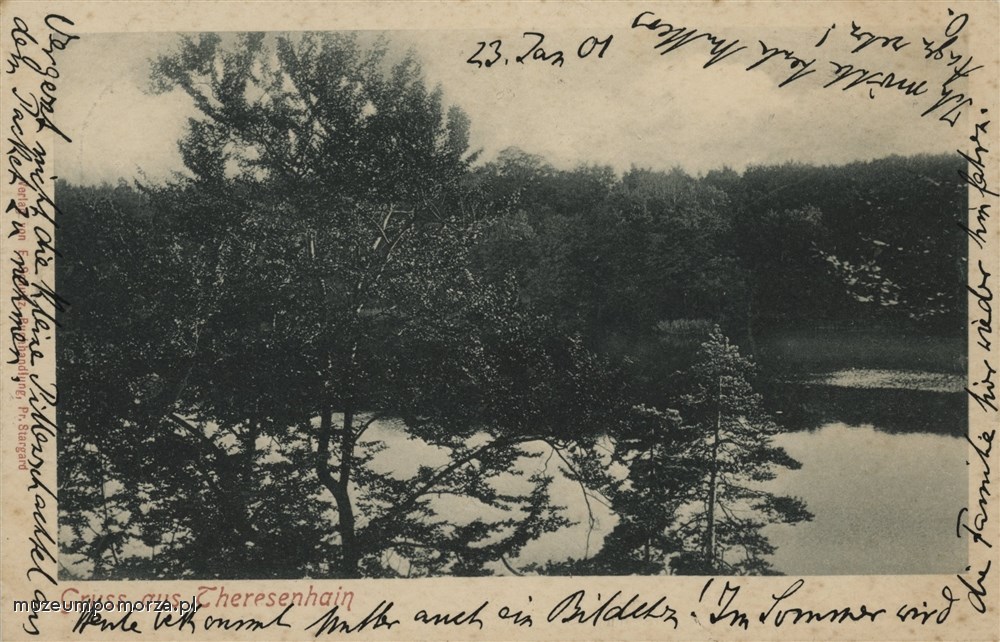 23. Jan 01
Ich möchte
Vergesst nicht die kleine Pillenschachtel aus
dem Packet zu nehmen,
Verlag von
Buchhandlung, Pr. Stargard
Gruss aus Theresenhain
Heute bekommt Mutter auch ein Bildchen! Im Sommer wird
die Familie hier wieder hinfahren.
muzeumpomorza.pl